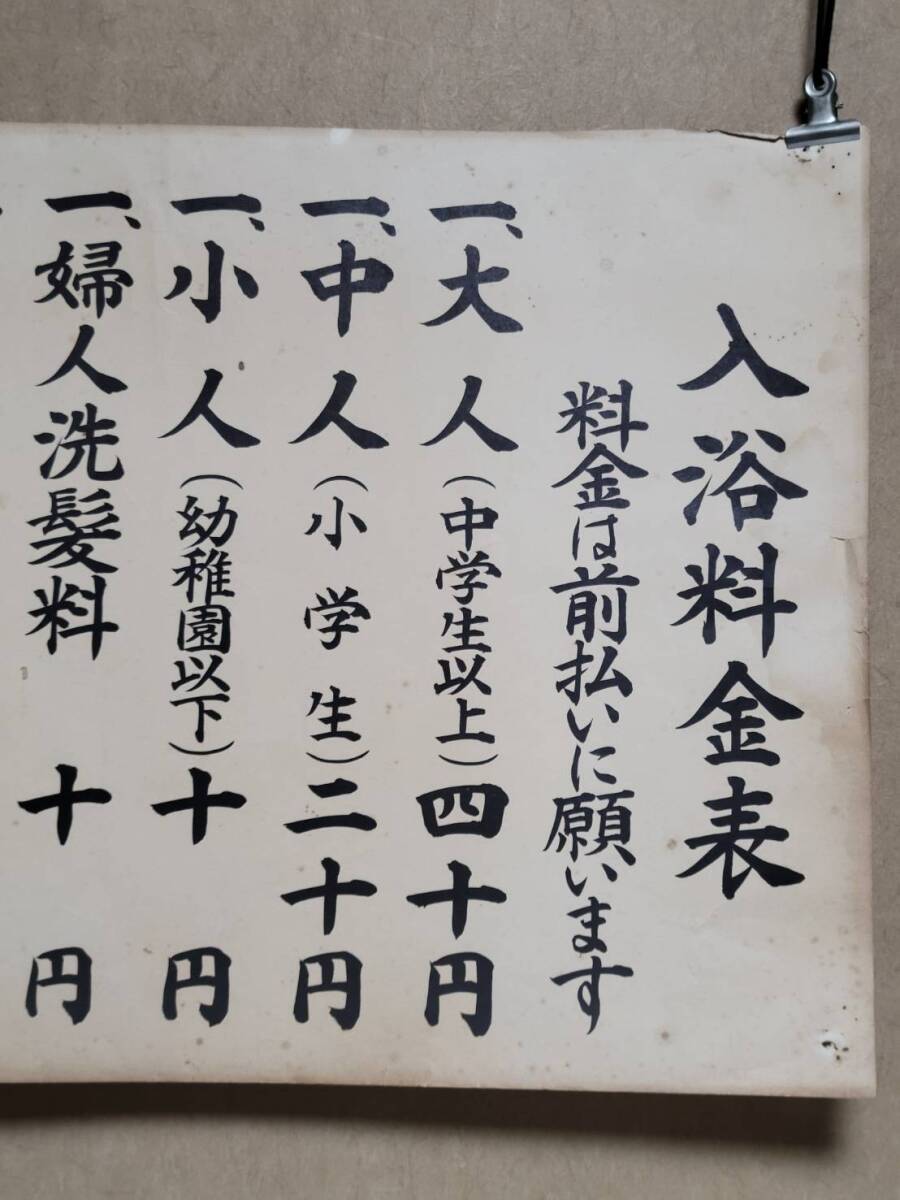 入浴料金表
料金は前払いに願います
一、大人(中学生以上)四十円
一、中人(小学生)二十円
一、小人(幼稚園以下)十円
一、婦人洗髪料 十円